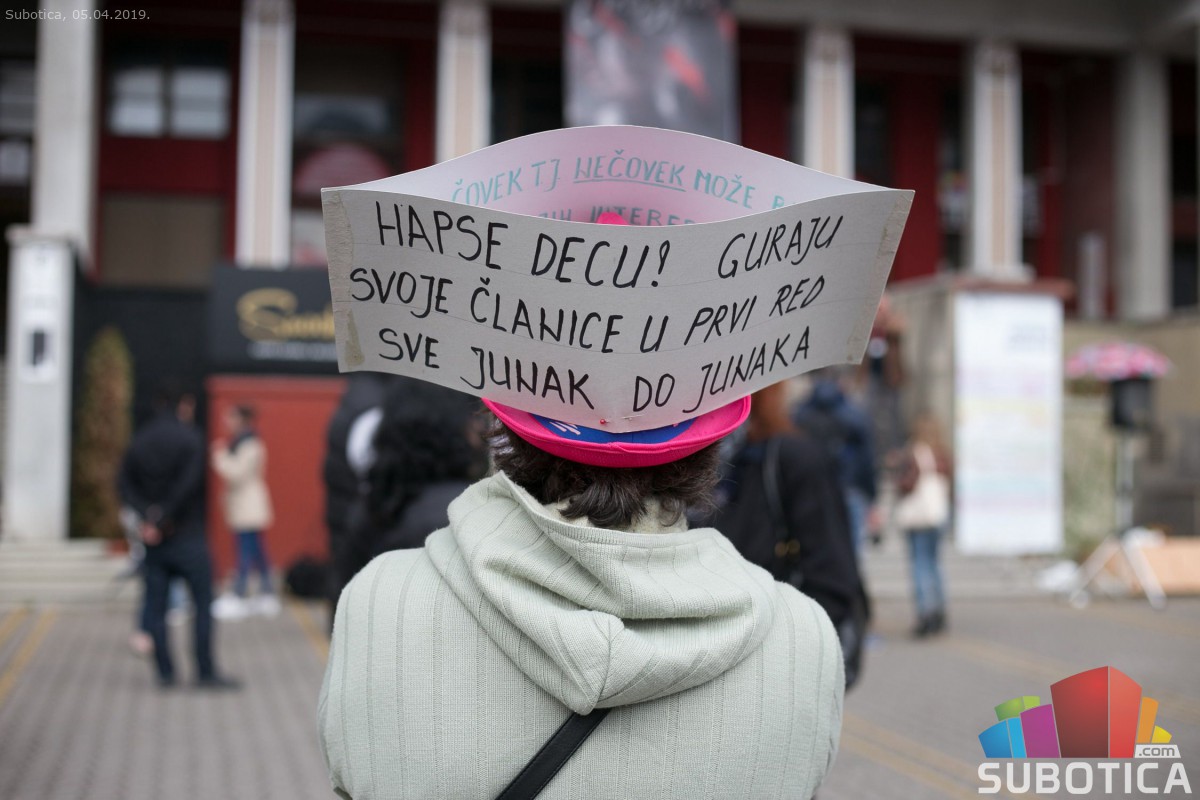 Subotica, 05.04.2019.
ČOVEK TJ NEČOVEK MOŽE
HAPSE DECU! GURAJU
SVOJE ČLANICE U PRVI RED
SVE JUNAK DO JUNAKA
.com
SUBOTICA